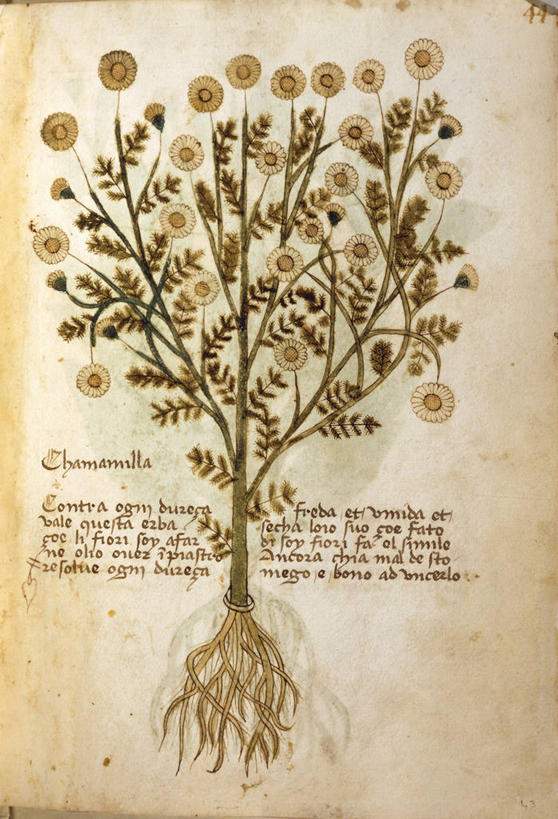 44
Chamamilla
Contra ogni dureça
vale questa erba.
çoe li fiori soy afar
ne olio ouer īpiastro
resolue ogni dureça
freda et vmida et
secha loio suo çoe fato
di soy fiori fa el simile
Ancora chia mal de sto
mego e bono ad vncerlo
43